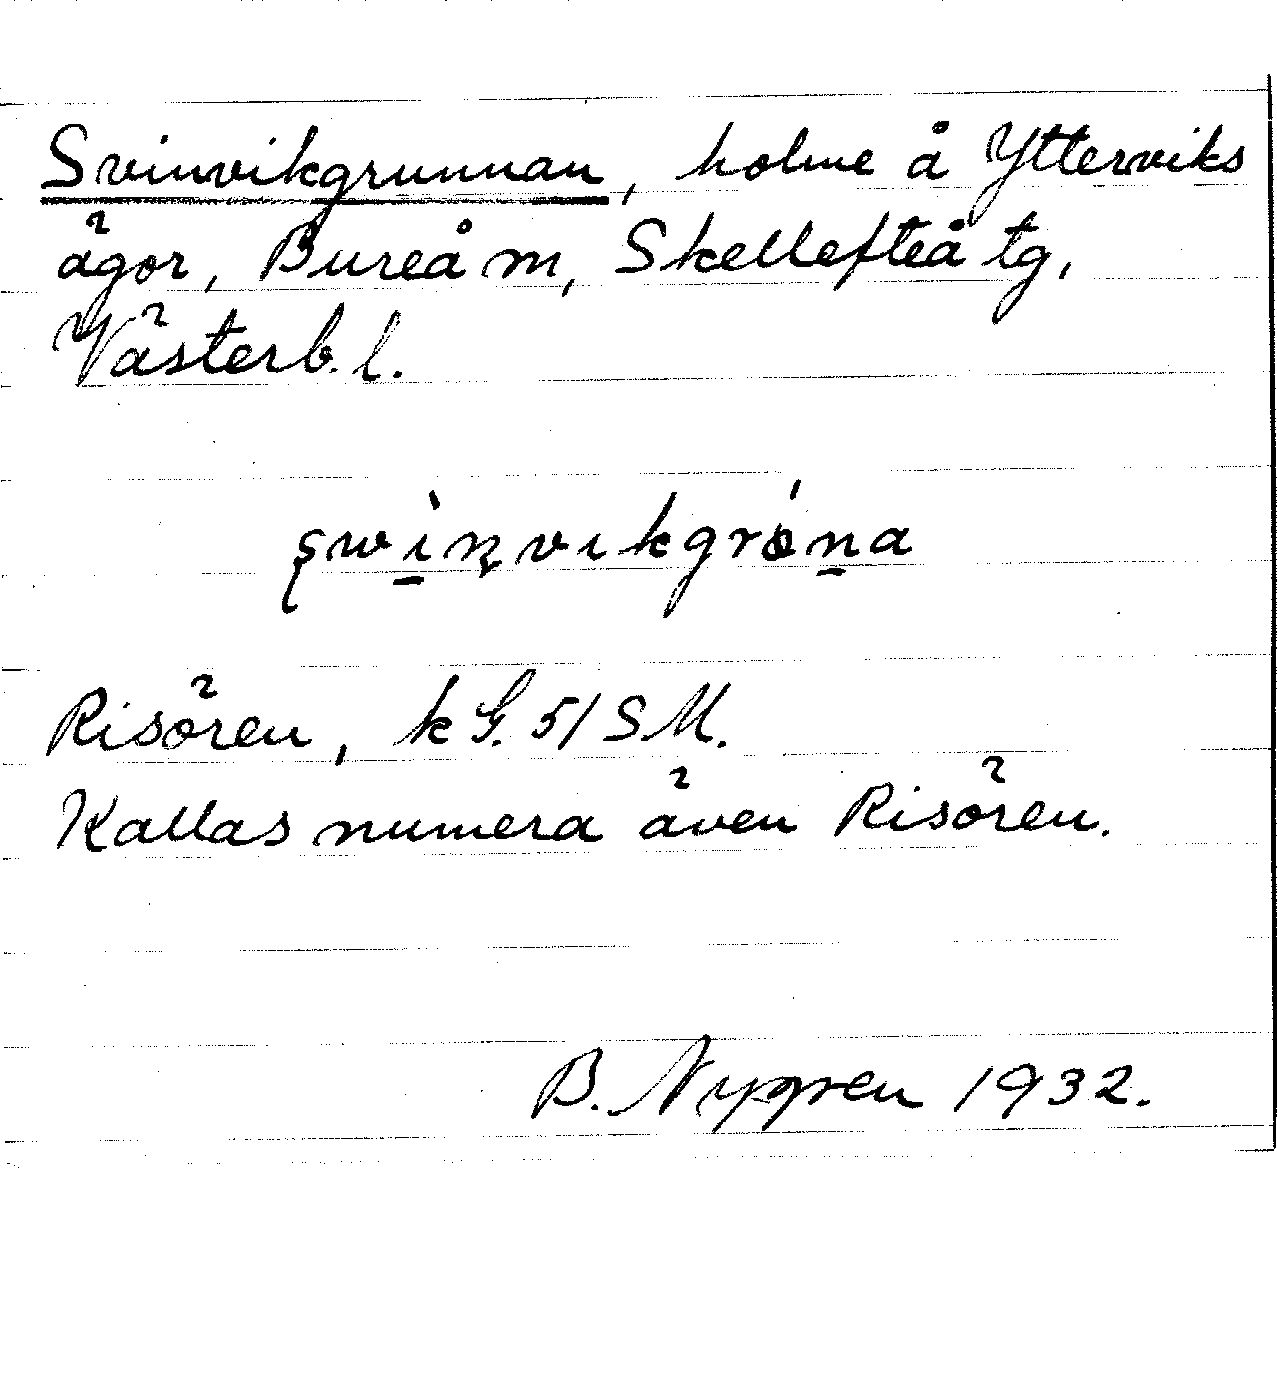 Svinvikgrunnan, holme å Ytterviks
ägor, Bureå m, Skellefteå tg,
Västerb. l.
Risören, k G. 51 SM.
Kallas numera även Risören.
B. Nygren 1932.